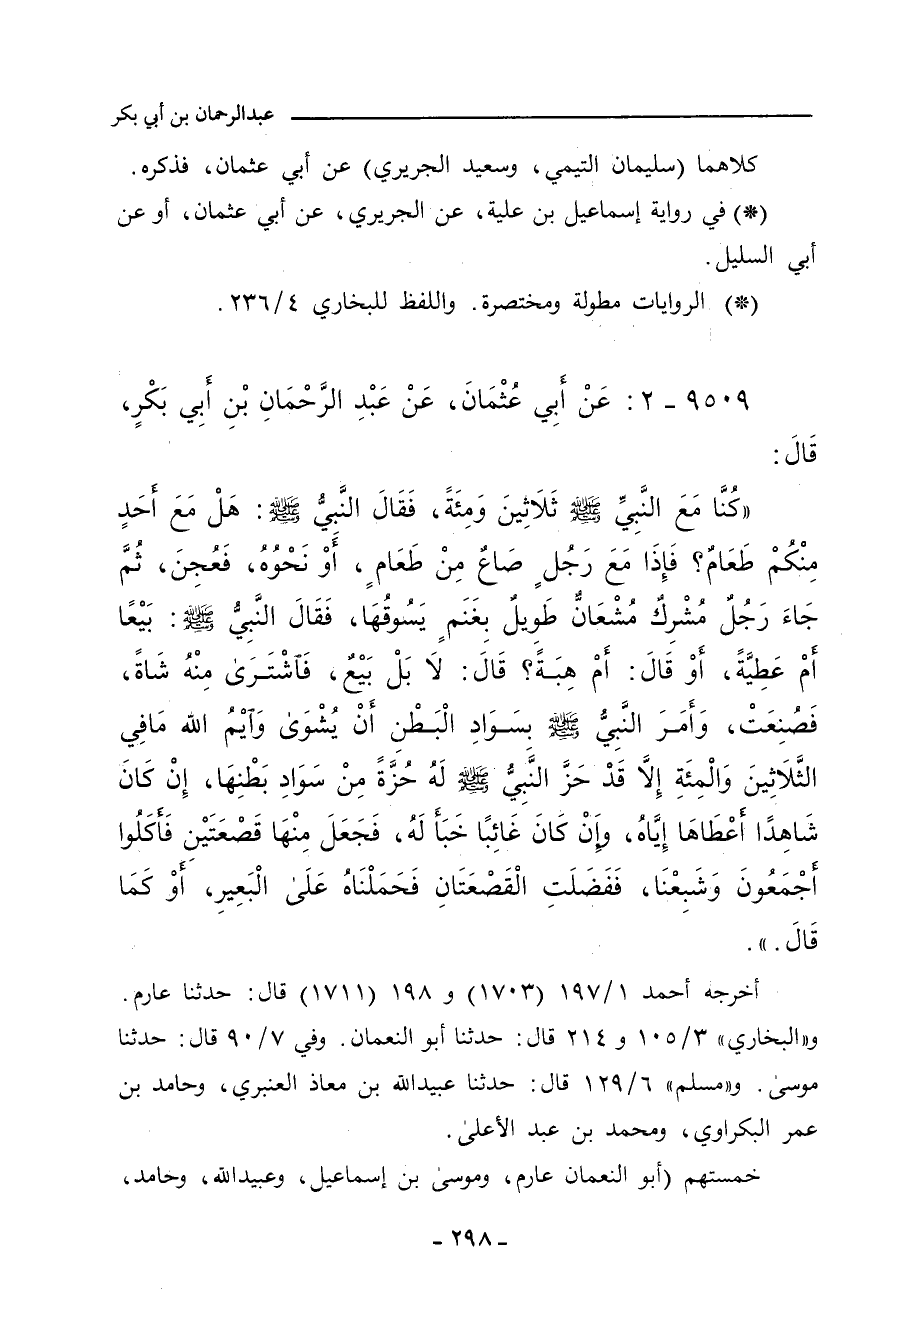 عبدالرحمان بن أبي بكر
كلاهما (سليمان التيمي، وسعيد الجريري) عن أبي عثمان، فذكره.
(*) في رواية إسماعيل بن علية، عن الجريري، عن أبي عثمان، أو عن
أبي السليل.
(*) الروايات مطولة ومختصرة. واللفظ للبخاري ٢٣٦/٤.
٩٥٠٩ - ٢: عَنْ أَبِي عُثْمَانَ، عَنْ عَبْدِ الرَّحْمَانِ بْنِ أَبِي بَكْرٍ،
قَالَ:
«كُنَّا مَعَ النَّبِيِّ ﷺ ثَلَاثِينَ وَمِئَةً، فَقَالَ النَّبِيُّ ﷺ: هَلْ مَعَ أَحَدٍ
مِنْكُمْ طَعَامٌ؟ فَإِذَا مَعَ رَجُلٍ صَاعٌ مِنْ طَعَامٍ، أَوْ نَحْوُهُ، فَعُجِنَ، ثُمَّ
جَاءَ رَجُلٌ مُشْرِكٌ مُشْعَانٌّ طَوِيلٌ بِغَنَمٍ يَسُوقُهَا، فَقَالَ النَّبِيُّ ﷺ: بَيْعًا
أَمْ عَطِيَّةً، أَوْ قَالَ: أَمْ هِبَةً؟ قَالَ: لَا بَلْ بَيْعٌ، فَاشْتَرَىٰ مِنْهُ شَاةً،
فَصُنِعَتْ، وَأَمَرَ النَّبِيُّ ﷺ بِسَوَادِ الْبَطْنِ أَنْ يُشْوَىٰ وَآيْمُ الله مَافِي
الثَّلَاثِينَ وَالْمِئَةِ إِلَّا قَدْ حَزَّ النَّبِيُّ ﷺ لَهُ حُزَّةً مِنْ سَوَادِ بَطْنِهَا، إِنْ كَانَ
شَاهِدًا أَعْطَاهَا إِيَّاهُ، وَإِنْ كَانَ غَائِبًا خَبَأَ لَهُ، فَجَعَلَ مِنْهَا قَصْعَتَيْنِ فَأَكَلُوا
أَجْمَعُونَ وَشَبِعْنَا، فَفَضَلَتِ الْقَصْعَتَانِ فَحَمَلْنَاهُ عَلَىٰ الْبَعِيرِ، أَوْ كَمَا
قَالَ.».
أخرجه أحمد ١٩٧/١ (١٧٠٣) و ١٩٨ (١٧١١) قال: حدثنا عارم.
و«البخاري» ١٠٥/٣ و ٢١٤ قال: حدثنا أبو النعمان. وفي ٩٠/٧ قال: حدثنا
موسىٰ. و«مسلم» ١٢٩/٦ قال: حدثنا عبيدالله بن معاذ العنبري، وحامد بن
عمر البكراوي، ومحمد بن عبد الأعلىٰ.
خمستهم (أبو النعمان عارم، وموسىٰ بن إسماعيل، وعبيدالله، وحامد،
- ٢٩٨ -